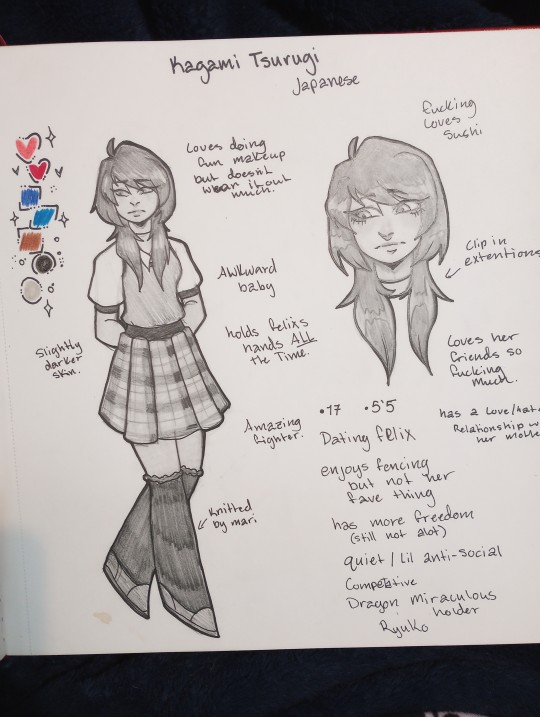 Kagami Tsurugi
Japanese
Fucking
Loves
Sushi
Loves doing
fun makeup
but doesn't
wear it out
much.
Clip in
extentions
Awkward
baby
holds felixs
hands ALL
the Time.
Slightly
darker
skin.
Loves her
friends so
fucking
much.
•17 •5'5
has a Love/hat
Relationship w
her mothe
Amazing
fighter.
Dating felix
enjoys fencing
but not her
fave thing
Knitted
by mari
has more freedom
(still not alot)
quiet / lil anti-social
Competative
Dragon miraculous
holder
Ryuko